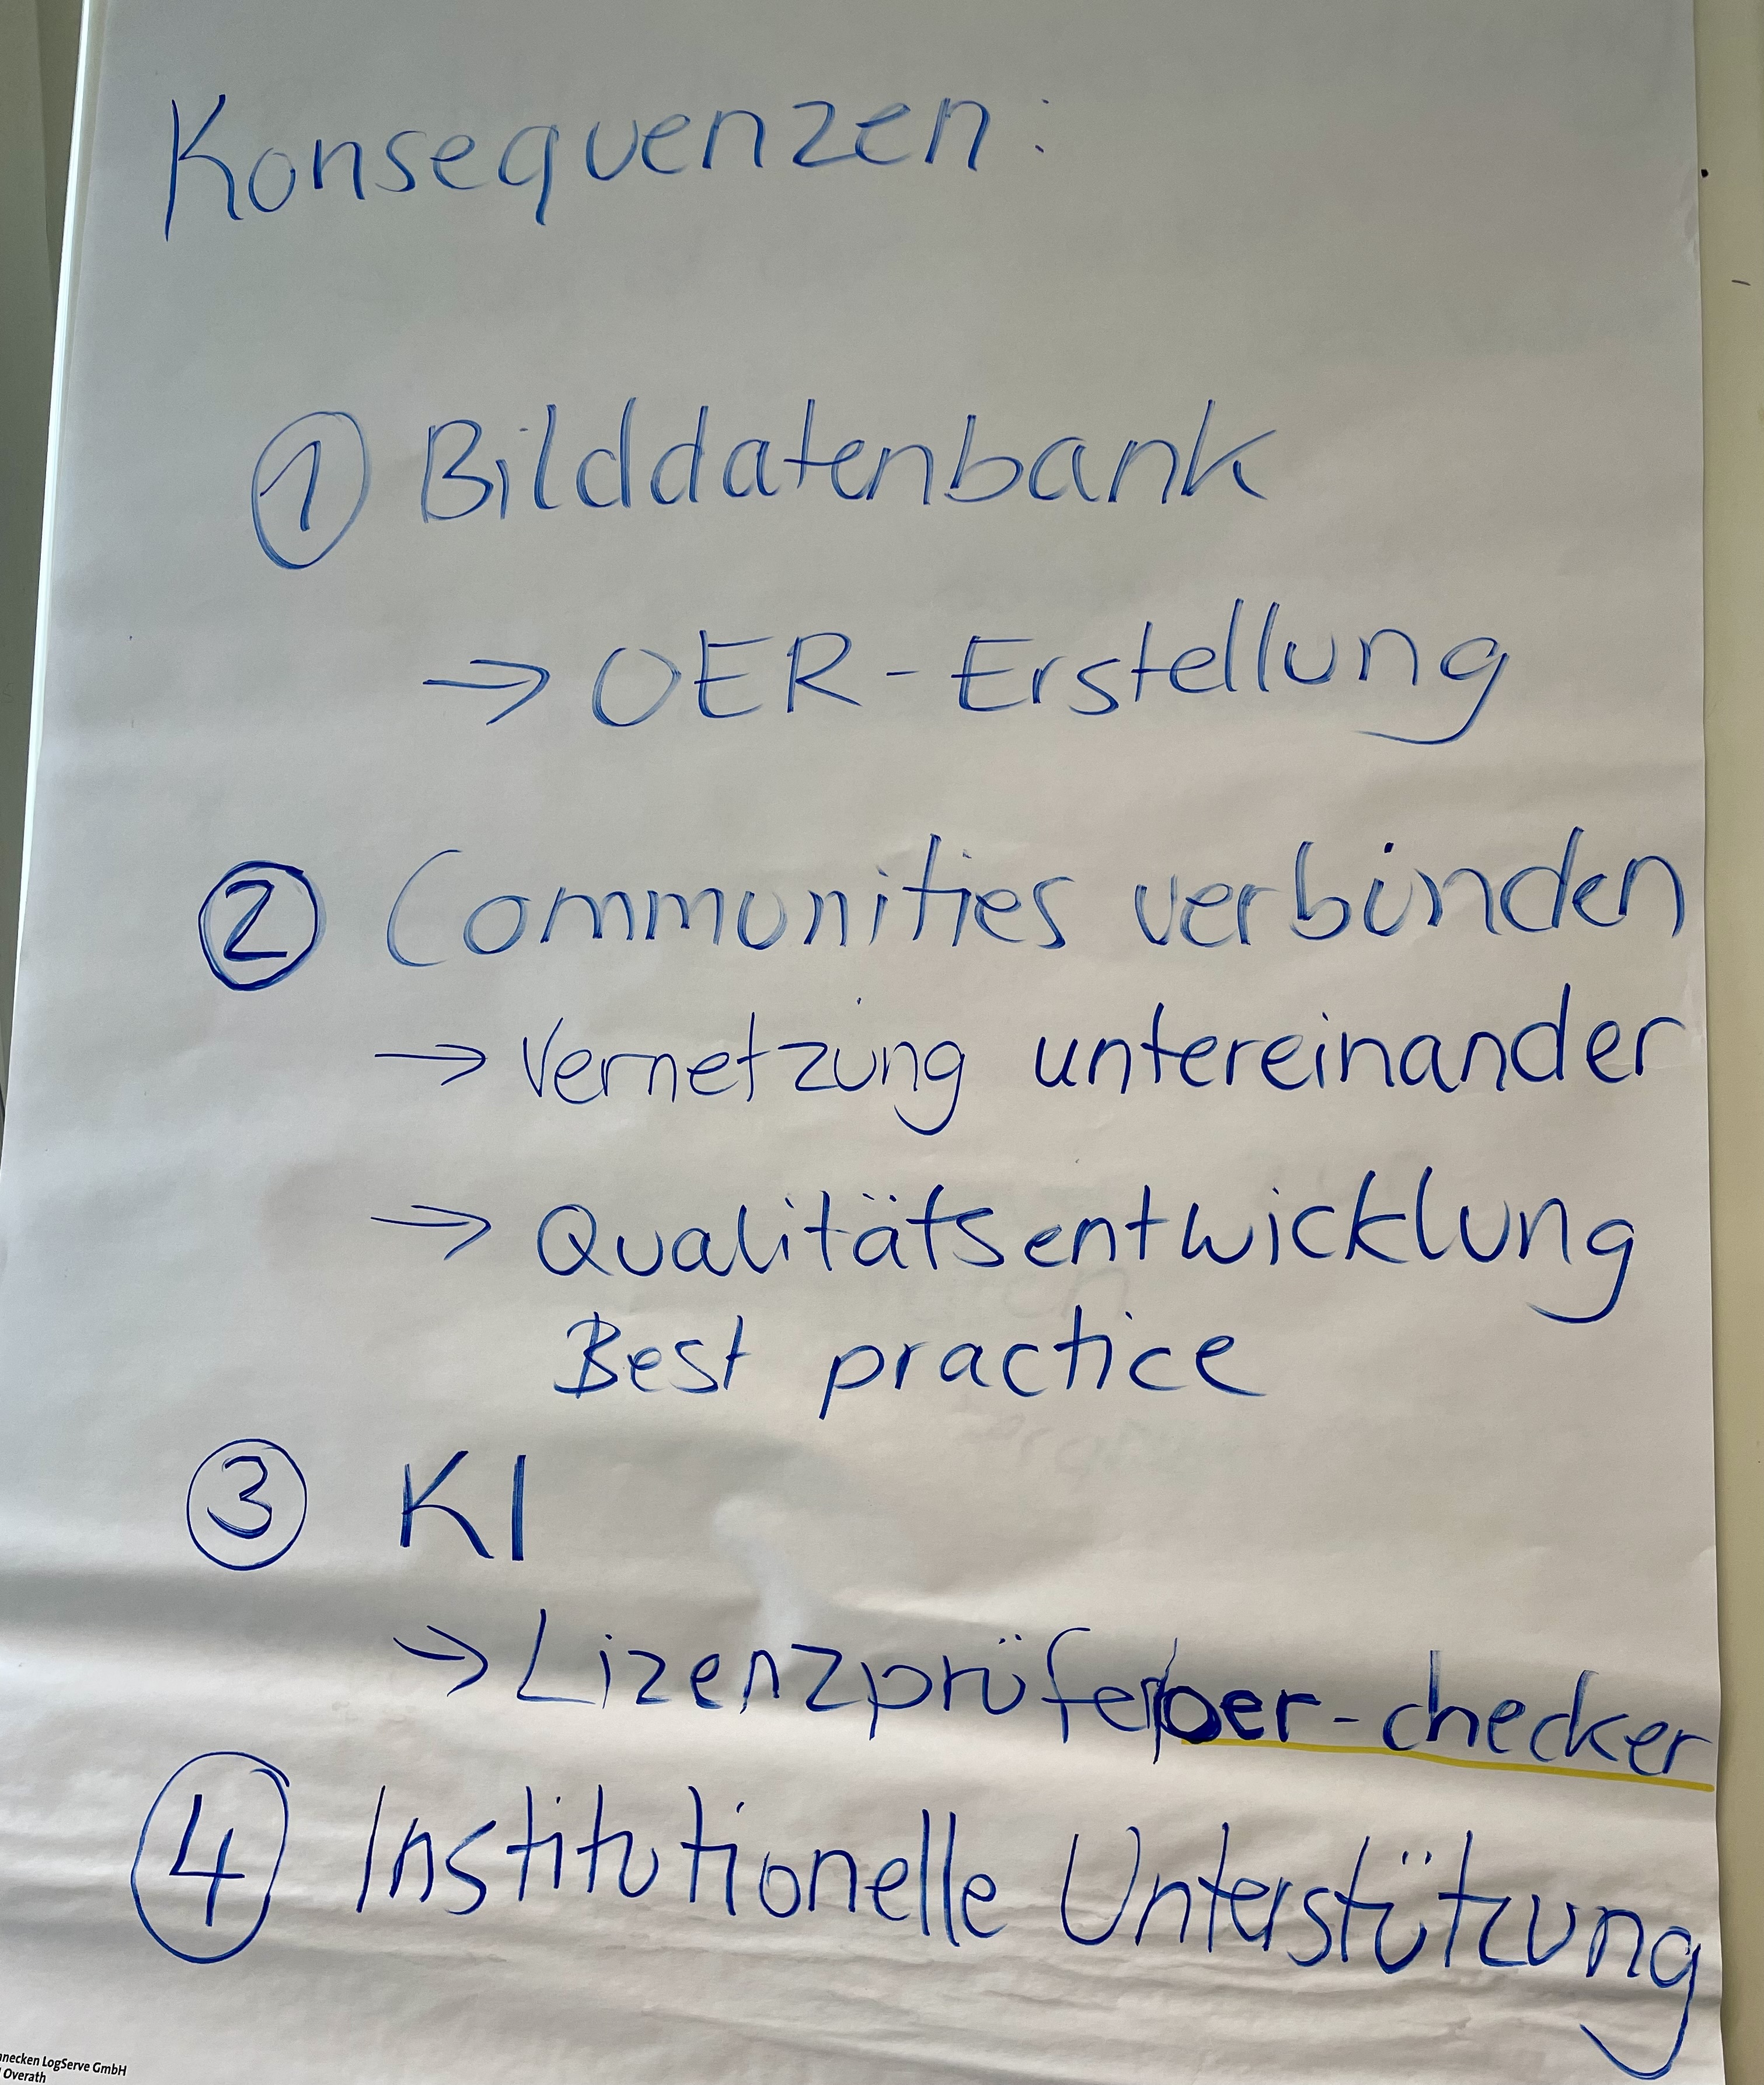 Konsequenzen:
① Bilddatenbank
→ OER-Erstellung
② Communities verbinden
→ Vernetzung untereinander
→ Qualitätsentwicklung
Best practice
③ KI
→ Lizenzprüfer/oer-checker
④ Institutionelle Unterstützung
LogServe GmbH
Overath